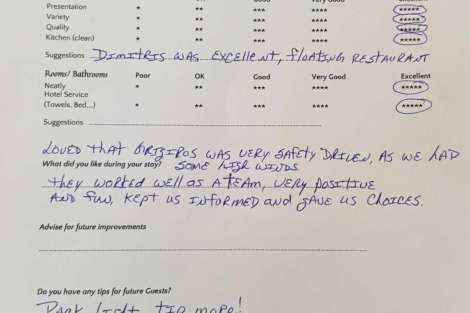 Presentation * *** **** *****
Variety * ** *** **** *****
Quality * ** *** **** *****
Kitchen (clean) * ** *** **** *****
Suggestions Dimitris was excellent, floating restaurant
Rooms/ Bathrooms Poor OK Good Very Good Excellent
Neatly * ** *** **** *****
Hotel Service
(Towels, Bed...) * ** *** **** *****
Suggestions
Loved that was very safety driven, as we had
What did you like during your stay? some high winds
they worked well as a team, very positive
and fun, kept us informed and gave us choices.
Advise for future improvements
Do you have any tips for future Guests?
Pack light, tip more!